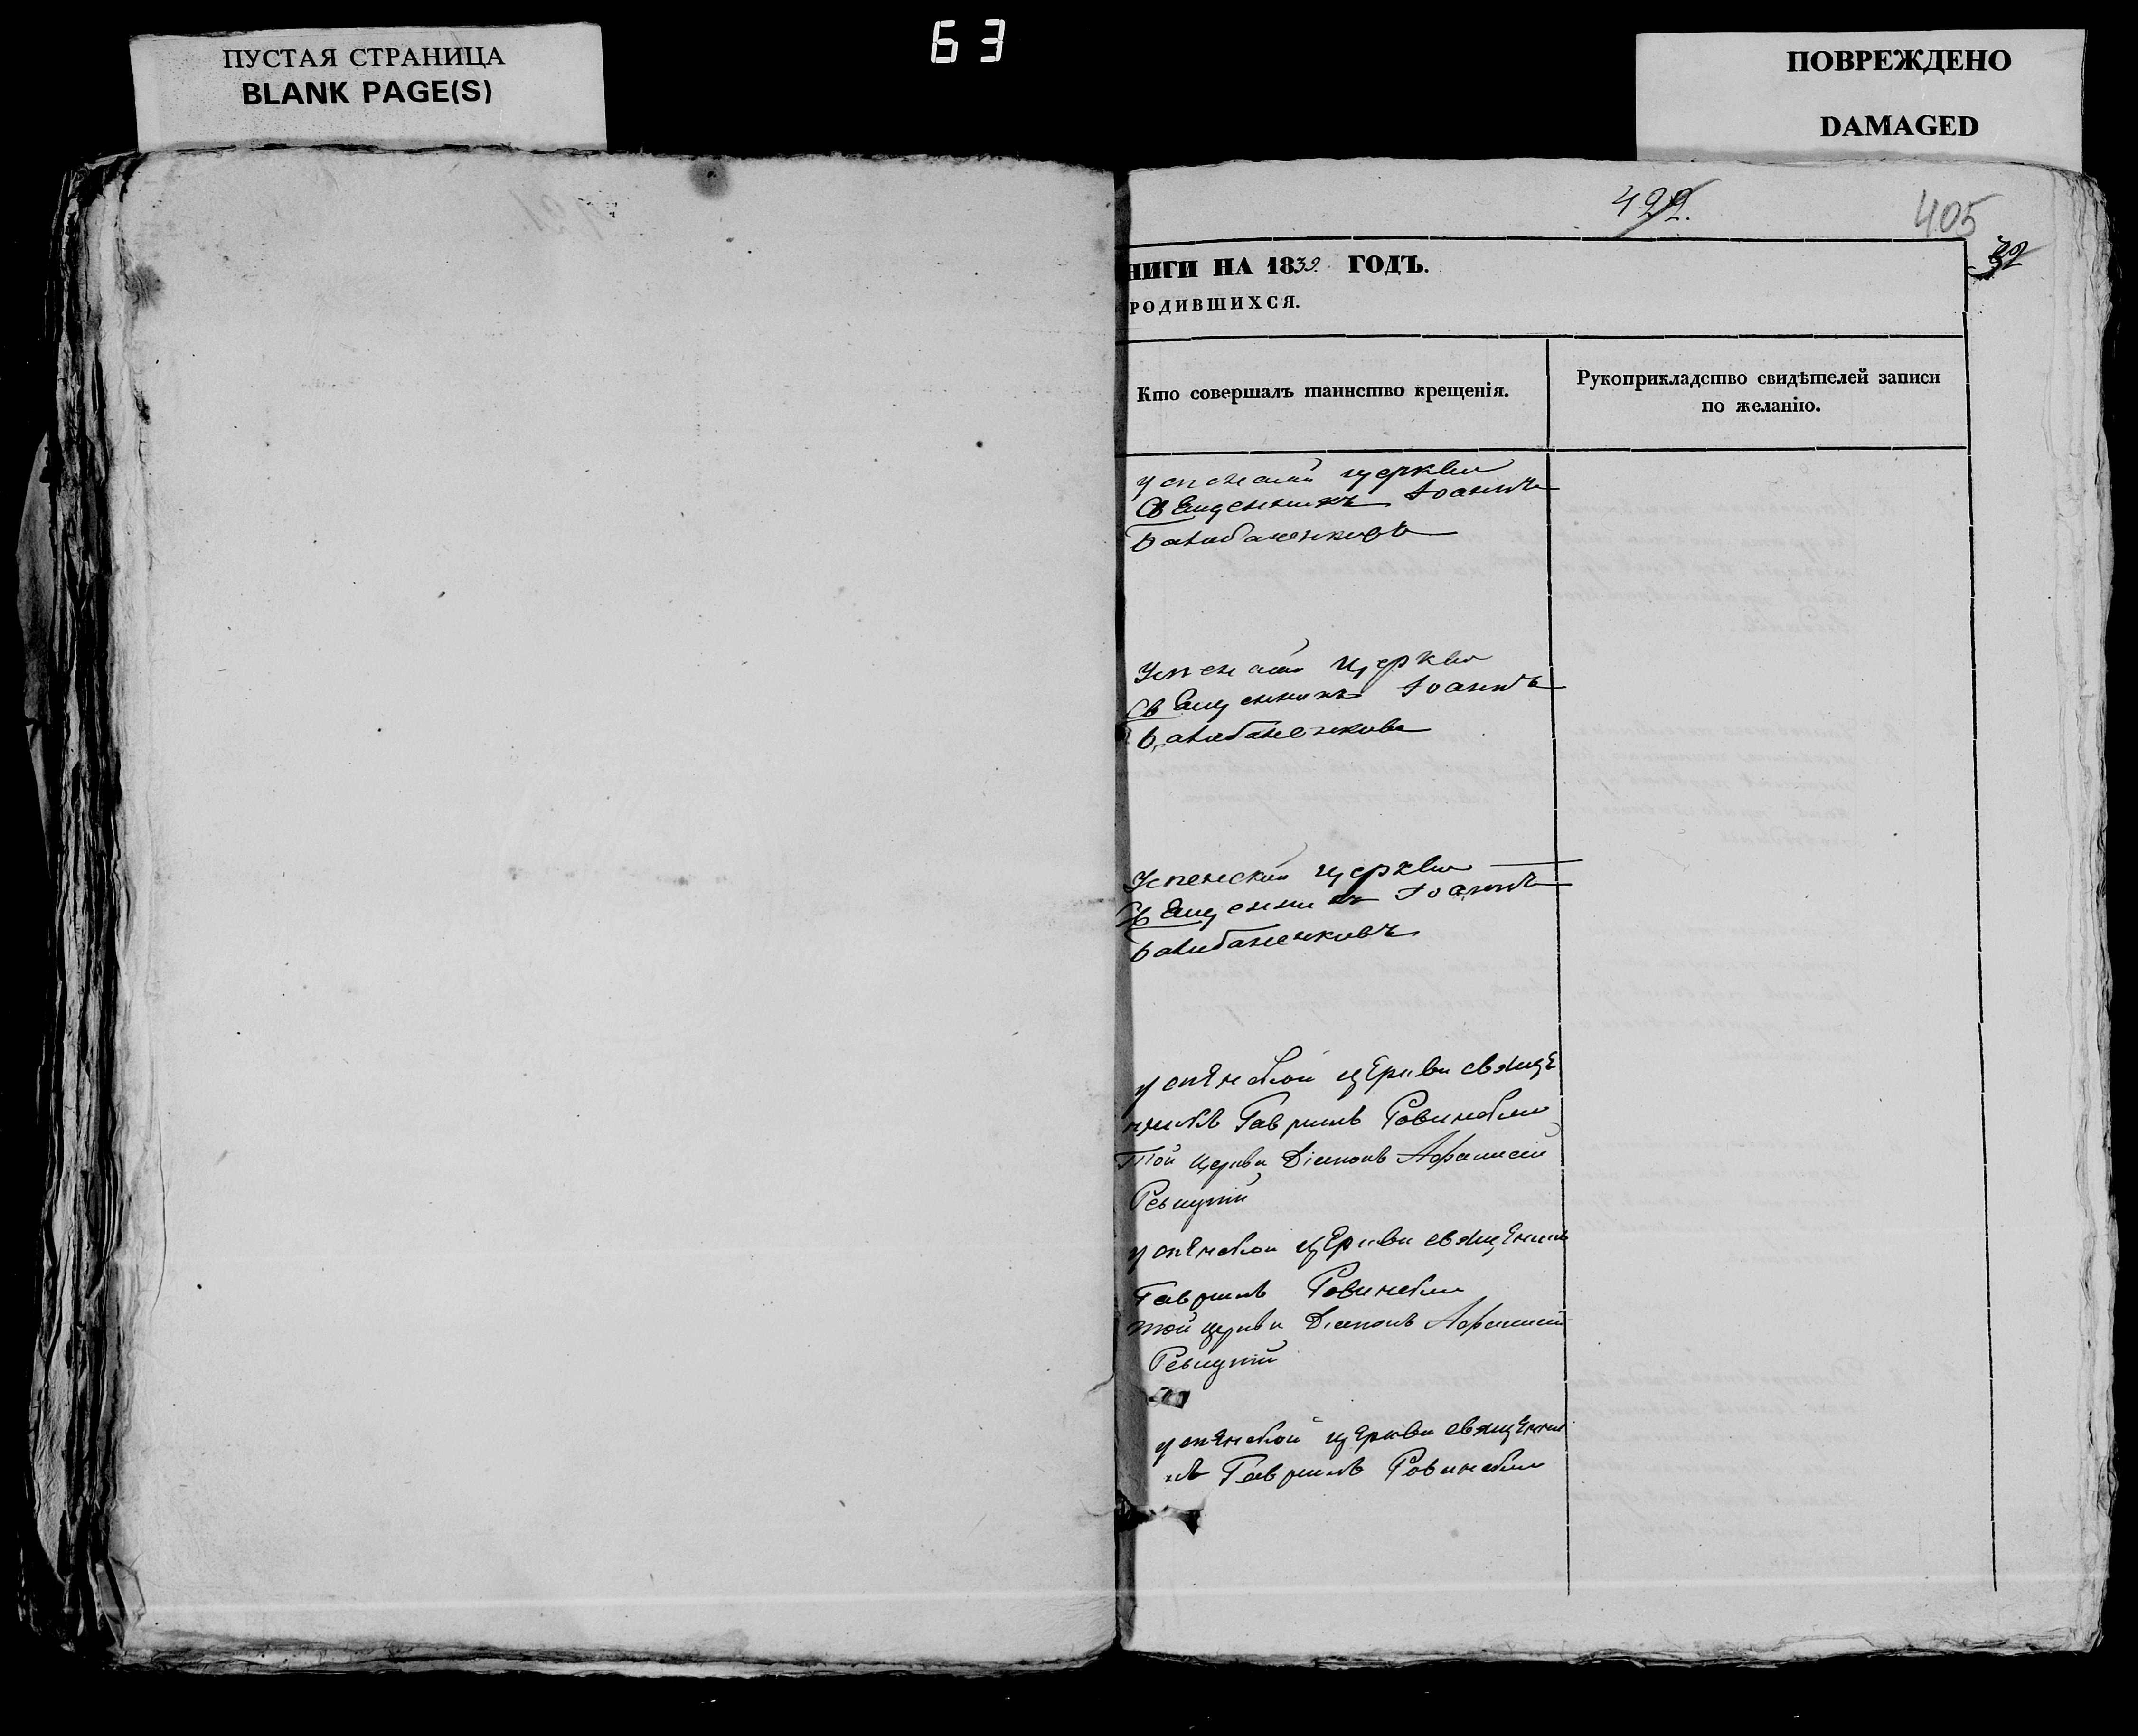 ПУСТАЯ СТРАНИЦА
BLANK PAGE(S)
63
ПОВРЕЖДЕНО
DAMAGED
422.
405
НИГИ НА 1839. ГОДЪ.
РОДИВШИХСЯ.
Кто совершалъ таинство крещенія.
Рукоприкладство свидѣтелей записи
по желанію.
Успенской церкви
Священникъ Іоаннъ
Успенской церкви
Священникъ Іоаннъ
Успенской церкви
Священникъ Іоаннъ
успенской церкви священ
никъ Гавриилъ Ровинский
той церкви Діаконъ Афанасий
Ревуцкій
успенской церкви священникъ
Гавриилъ Ровинский
той церкви Діаконъ Афанасий
Ревуцкій
успенской церкви священни
къ Гавриилъ Ровинский